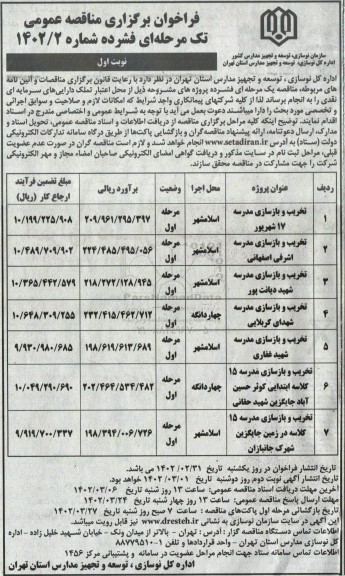 فراخوان برگزاری مناقصه عمومی
تک مرحله‌ای فشرده شماره ۱۴۰۲/۲
سازمان نوسازی، توسعه و تجهیز مدارس کشور
اداره کل نوسازی، توسعه و تجهیز مدارس استان تهران
نوبت اول
اداره کل نوسازی، توسعه و تجهیز مدارس استان تهران در نظر دارد با رعایت قانون برگزاری مناقصات و آئین نامه های مربوطه، مناقصه یک مرحله ای فشرده پروژه های مشروحه ذیل از محل اعتبار تملک دارایی‌های سرمایه ای نقدی را به انجام برساند لذا از کلیه شرکتهای پیمانکاری واجد شرایط که امکانات لازم و صلاحیت و سوابق اجرائی و تخصصی مورد بحث را دارا میباشند دعوت بعمل می آید با توجه به شرایط عمومی و اختصاصی مندرج در اسناد اقدام نمایند. توضیح اینکه کلیه مراحل برگزاری مناقصه از دریافت اطلاعات و اسناد مناقصه عمومی، تحویل اسناد و مدارک، ارسال دعوتنامه، ارائه پیشنهاد مناقصه‌گران و بازگشایی پاکت‌ها از طریق درگاه سامانه تدارکات الکترونیکی دولت (ستاد) به آدرس www.setadiran.ir انجام خواهد شد و لازم است مناقصه گران در صورت عدم عضویت قبلی، مراحل ثبت نام در سایت مذکور و دریافت گواهی امضای الکترونیکی صاحبان امضاء مجاز و مهر الکترونیکی شرکت را جهت مشارکت در مناقصه محقق سازند.
ردیف | عنوان پروژه | محل اجرا | وضعیت | برآورد ریالی | مبلغ تضمین فرآیند ارجاع کار (ریال)
۱ | تخریب و بازسازی مدرسه ۱۷ شهریور | اسلامشهر | مرحله اول | ۲۰۹/۹۶۱/۲۹۵/۳۹۷ | ۱۰/۱۹۹/۲۲۵/۹۰۸
۲ | تخریب و بازسازی مدرسه اشرفی اصفهانی | اسلامشهر | مرحله اول | ۲۲۴/۴۸۵/۴۹۵/۰۵۶ | ۱۰/۴۸۹/۷۰۹/۹۰۲
۳ | تخریب و بازسازی مدرسه شهید دیافت پور | اسلامشهر | مرحله اول | ۲۱۸/۲۷۲/۱۲۸/۹۴۵ | ۱۰/۳۶۵/۴۴۲/۵۷۹
۴ | تخریب و بازسازی مدرسه شهدای کربلایی | چهاردانگه | مرحله اول | ۲۳۲/۴۱۵/۴۶۲/۷۱۲ | ۱۰/۶۴۸/۳۰۹/۲۵۵
۵ | تخریب و بازسازی مدرسه شهید غفاری | اسلامشهر | مرحله اول | ۱۹۸/۶۱۹/۶۱۳/۶۸۹ | ۹/۹۳۰/۹۸۰/۶۸۵
۶ | تخریب و بازسازی مدرسه ۱۵ کلاسه ابتدایی کوثر حسین آباد جایگزین شهید حقانی | چهاردانگه | مرحله اول | ۲۰۲/۴۶۴/۵۳۴/۴۸۲ | ۱۰/۰۴۹/۲۹۰/۶۹۰
۷ | تخریب و بازسازی مدرسه ۱۵ کلاسه در زمین جایگزین شهرک جانبازان | اسلامشهر | مرحله اول | ۱۹۸/۳۹۴/۰۰۶/۷۲۶ | ۹/۹۱۹/۷۰۰/۳۳۷
تاریخ انتشار فراخوان در روز یکشنبه تاریخ ۱۴۰۲/۰۲/۳۱ می باشد.
تاریخ انتشار آگهی نوبت دوم روز دوشنبه تاریخ ۱۴۰۲/۰۳/۰۱ خواهد بود.
آخرین مهلت دریافت اسناد مناقصه عمومی: ساعت ۱۳ روز شنبه تاریخ ۱۴۰۲/۰۳/۰۶
مهلت ارسال پاسخ مناقصه عمومی: ساعت ۱۳ روز چهار شنبه تاریخ ۱۴۰۲/۰۳/۲۴
تاریخ بازگشائی مرحله اول پاکت‌های مناقصه: ساعت ۷ صبح روز شنبه تاریخ ۱۴۰۲/۰۳/۲۷
این آگهی در سایت سازمان نوسازی به نشانی www.dresteh.ir نیز قابل رویت میباشد.
اطلاعات تماس دستگاه مناقصه گزار: آدرس: تهران – بالاتر از میدان ونک – خیابان شهید خلیل زاده – اداره کل نوسازی مدارس استان تهران – واحد قراردادها و تلفن ۱-۸۸۷۷۹۵۱۰
اطلاعات تماس سامانه ستاد جهت انجام مراحل عضویت در سامانه و پشتیبانی مرکز ۱۴۵۶
اداره کل نوسازی ، توسعه و تجهیز مدارس استان تهران